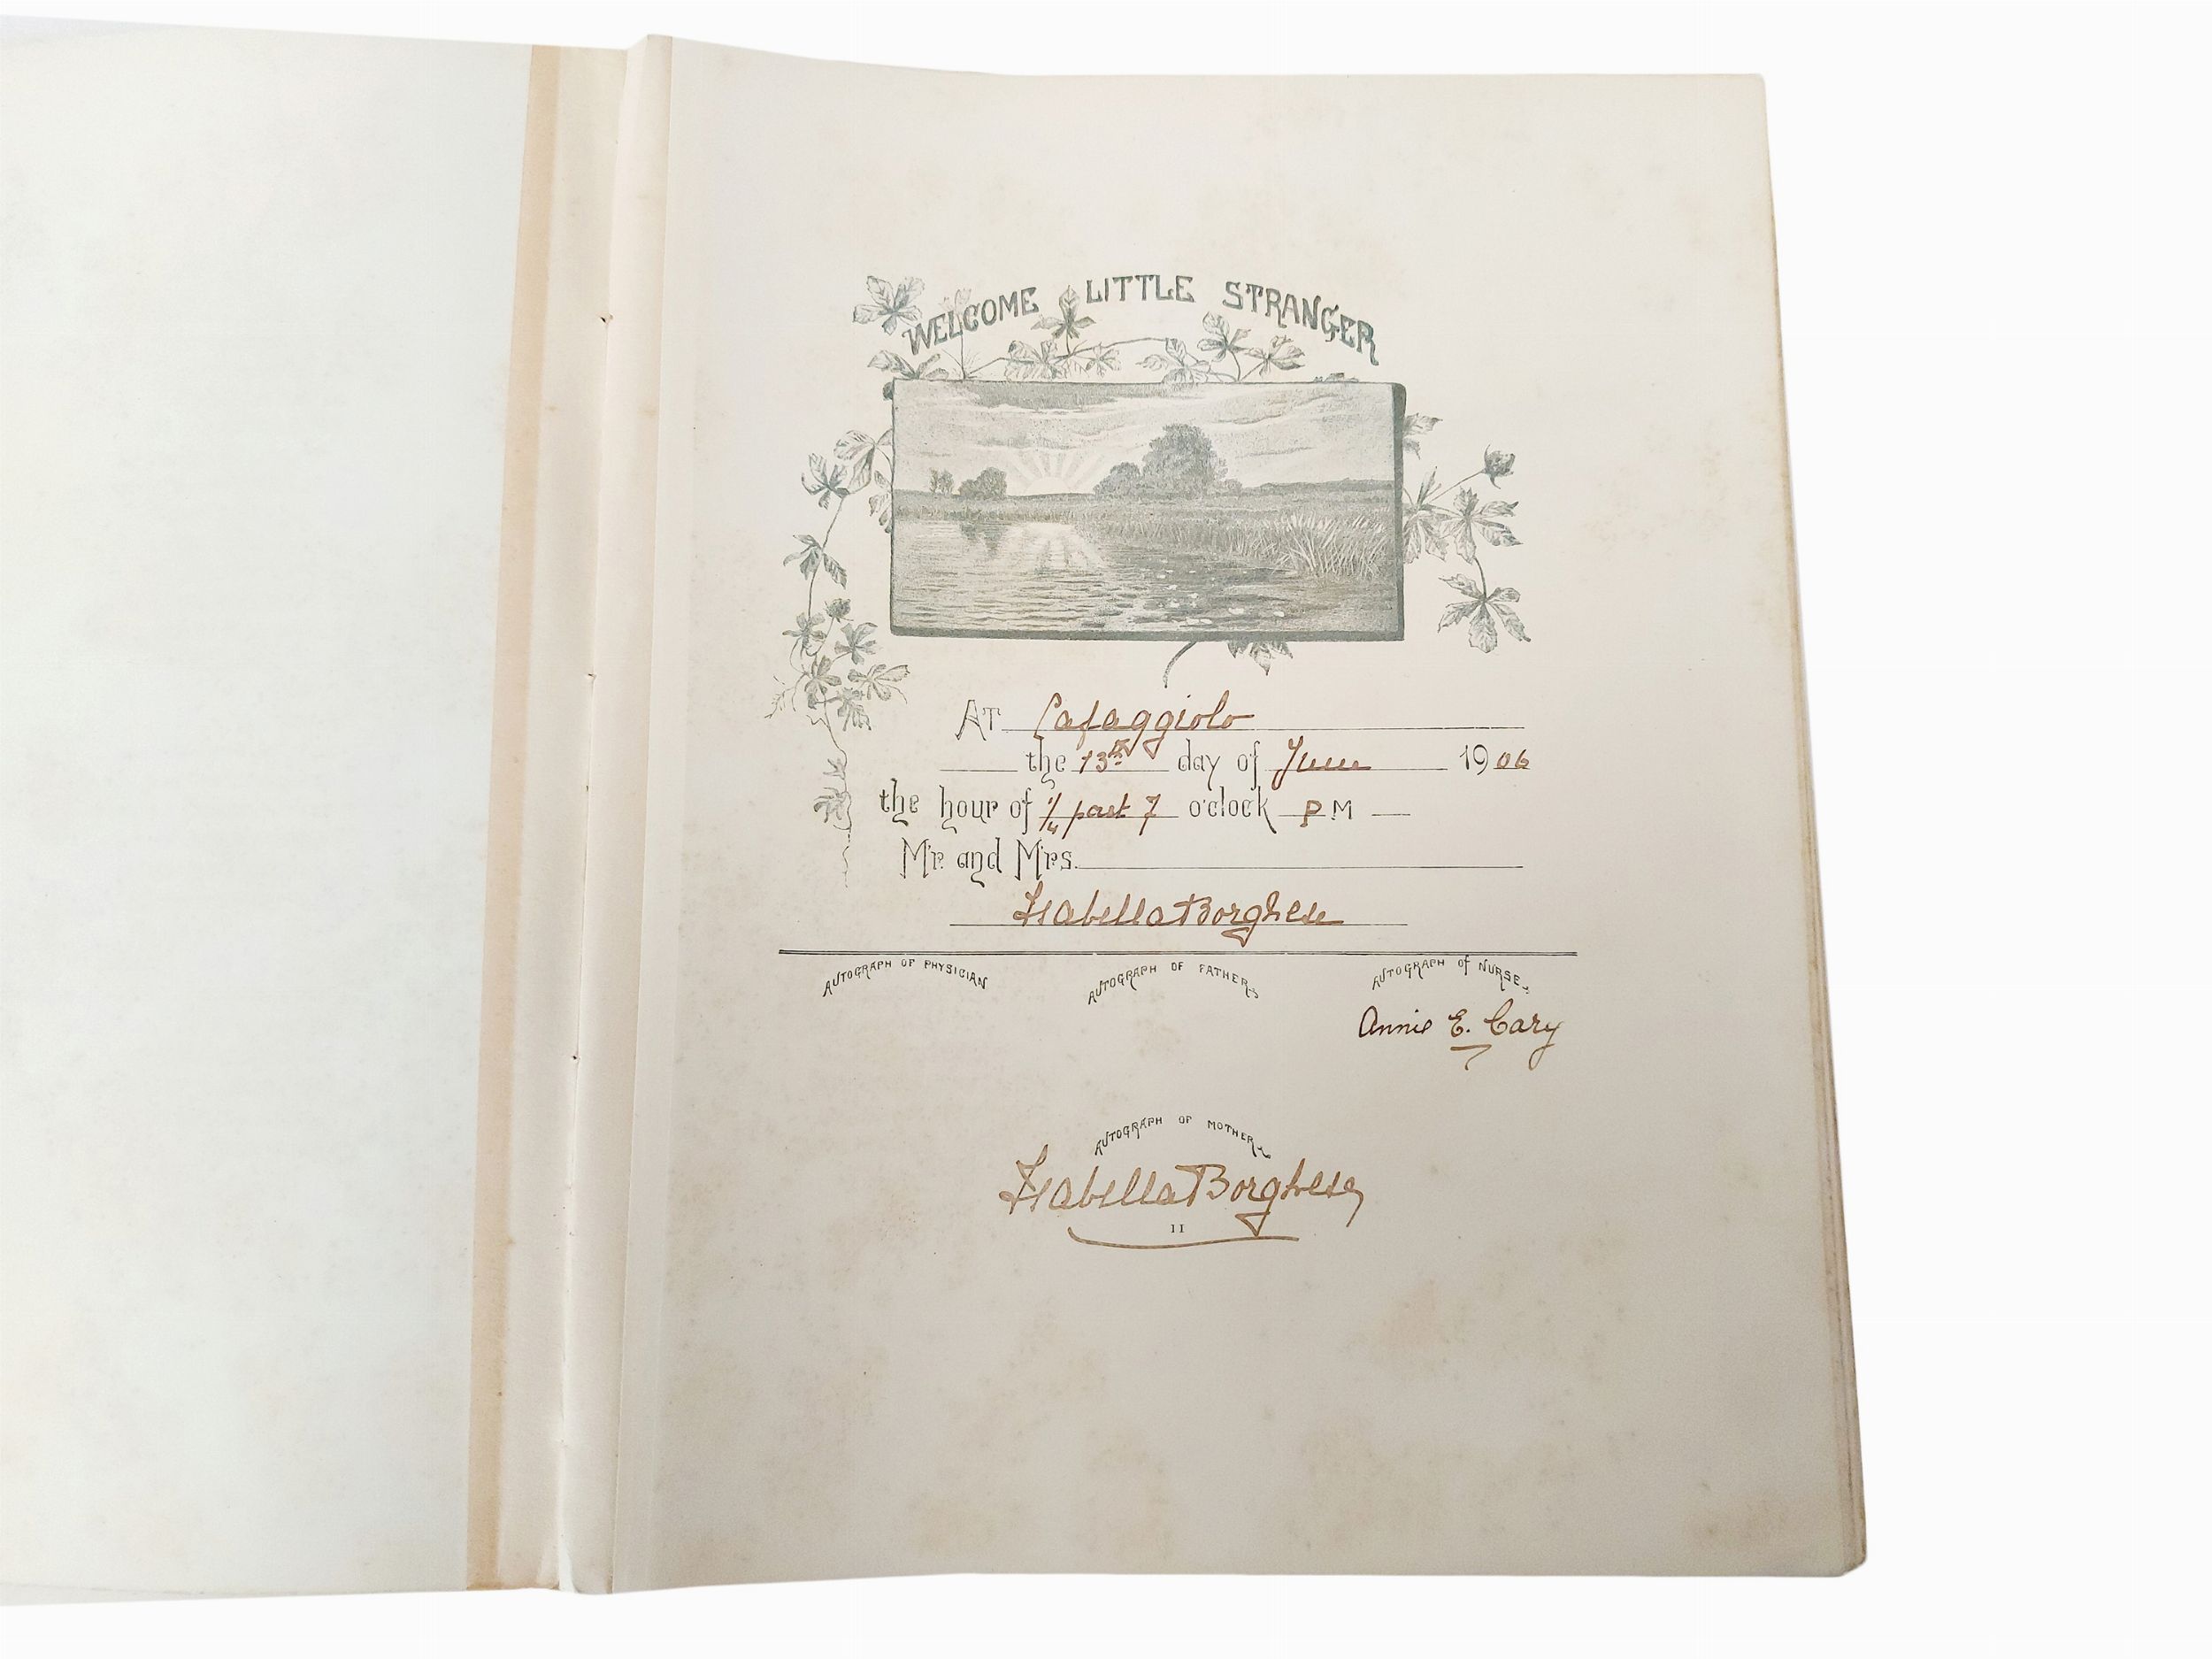 WELCOME LITTLE STRANGER
At Cafaggiolo
the 13th day of June 1906
the hour of 1/4 past 7 o'clock P.M
Mr. and Mrs.
Isabella Borghese
AUTOGRAPH OF PHYSICIAN AUTOGRAPH OF FATHER AUTOGRAPH of NURSE
Annie E. Cary
AUTOGRAPH OF MOTHER
Isabella Borghese
II